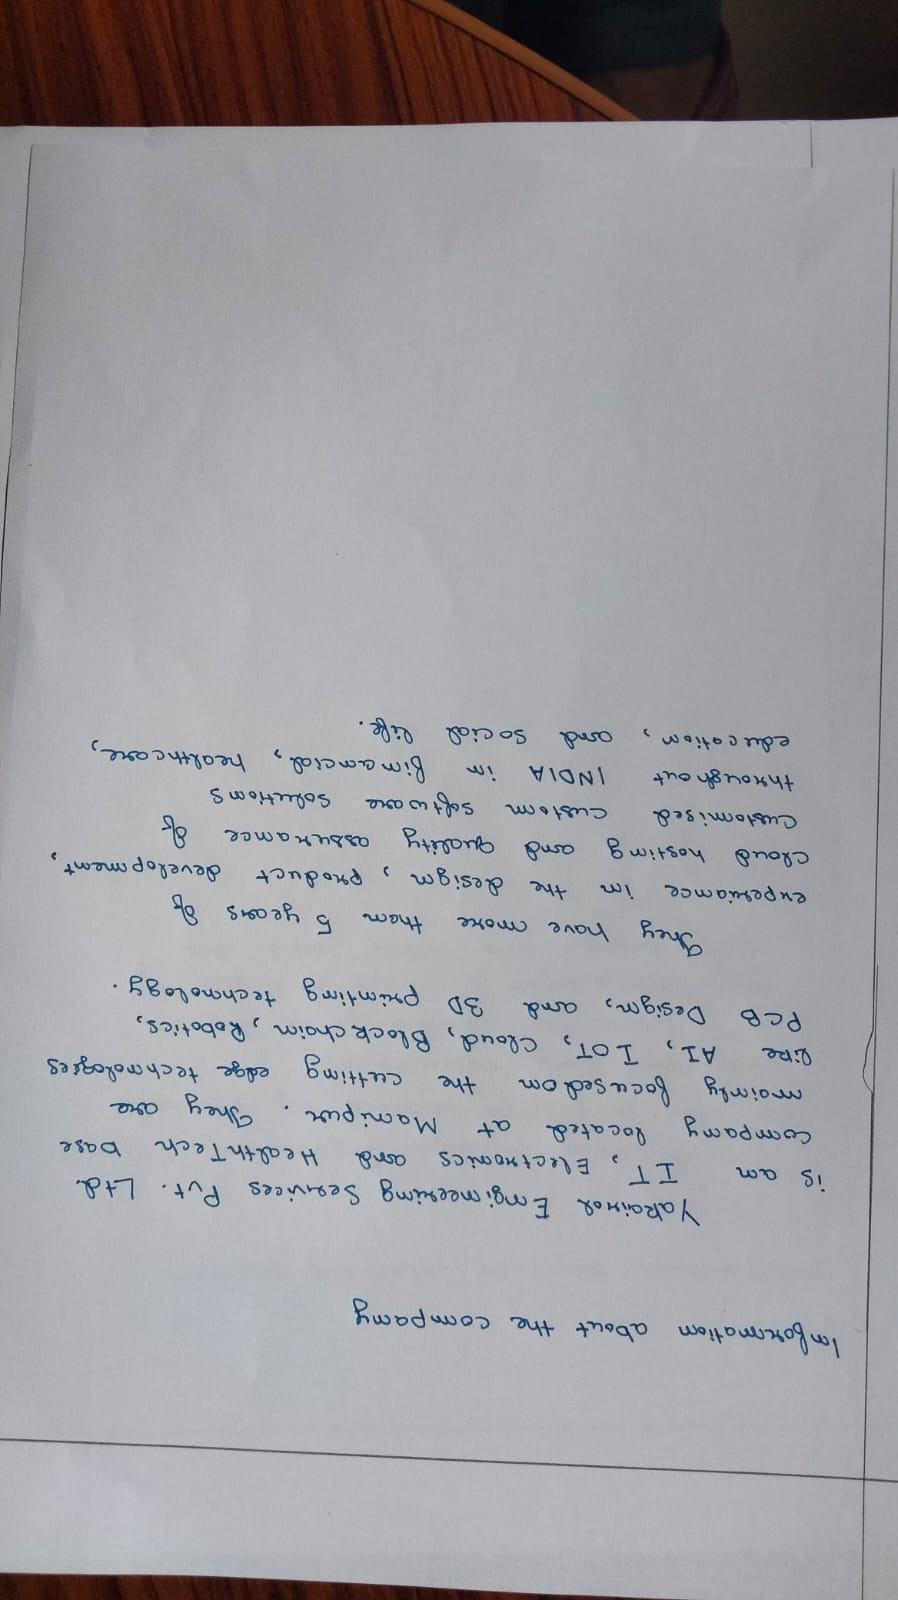 Information about the company
Yakairol Engineering Services Pvt. Ltd.
is an IT, Electronics and HealthTech base
company located at Manipur. They are
mainly focused on the cutting edge technologies
like AI, IOT, Cloud, Blockchain, Robotics,
PCB Design, and 3D printing technology.
They have more than 5 years of
experiance in the design, product development,
cloud hosting and quality assurance of
Customised custom software solutions
throughout INDIA in financial, healthcare,
education, and social life.